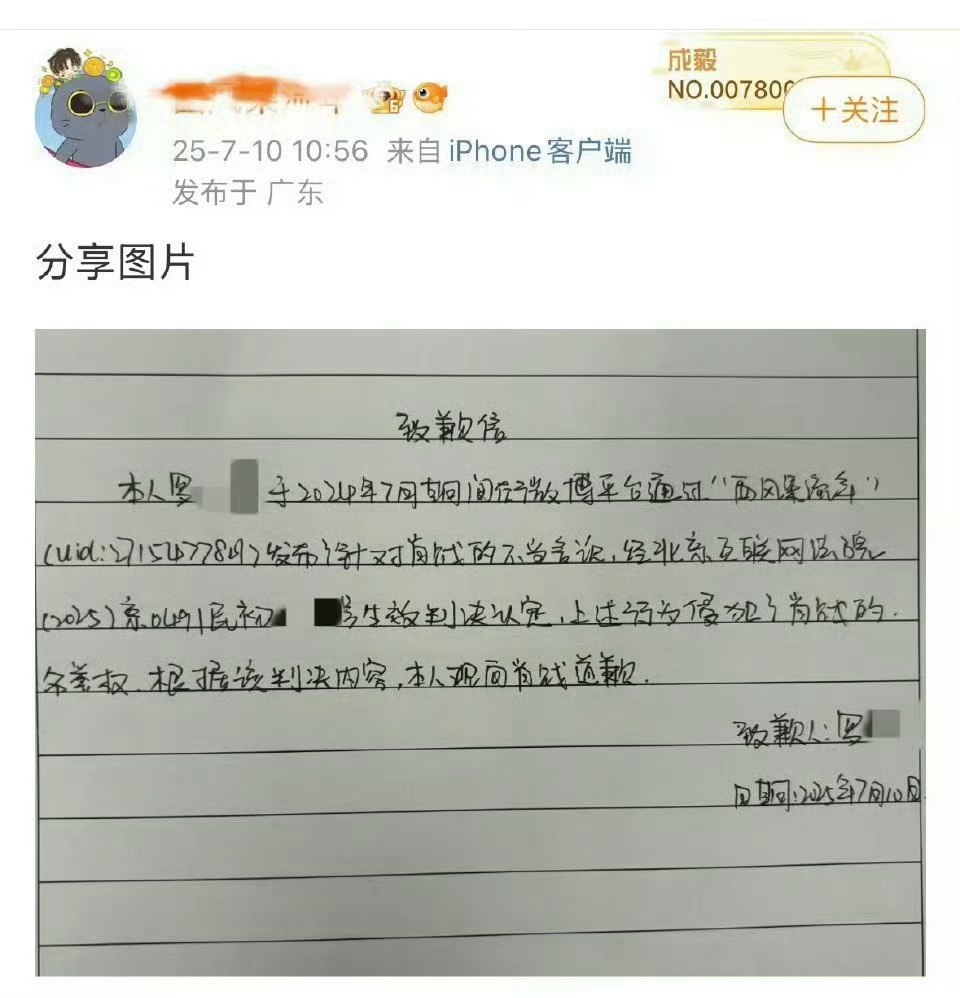 成毅
NO.007800
+关注
25-7-10 10:56 来自 iPhone客户端
发布于 广东
分享图片
致歉信
本人罗 于2024年7月期间在微博平台通过“西风乘流年”
(uid:2715477849)发布了针对肖战的不当言论,经北京互联网法院
(2025)京0491民初 号生效判决认定,上述行为侵犯了肖战的
名誉权.根据该判决内容,本人现向肖战道歉.
致歉人:罗
日期:2025年7月10日